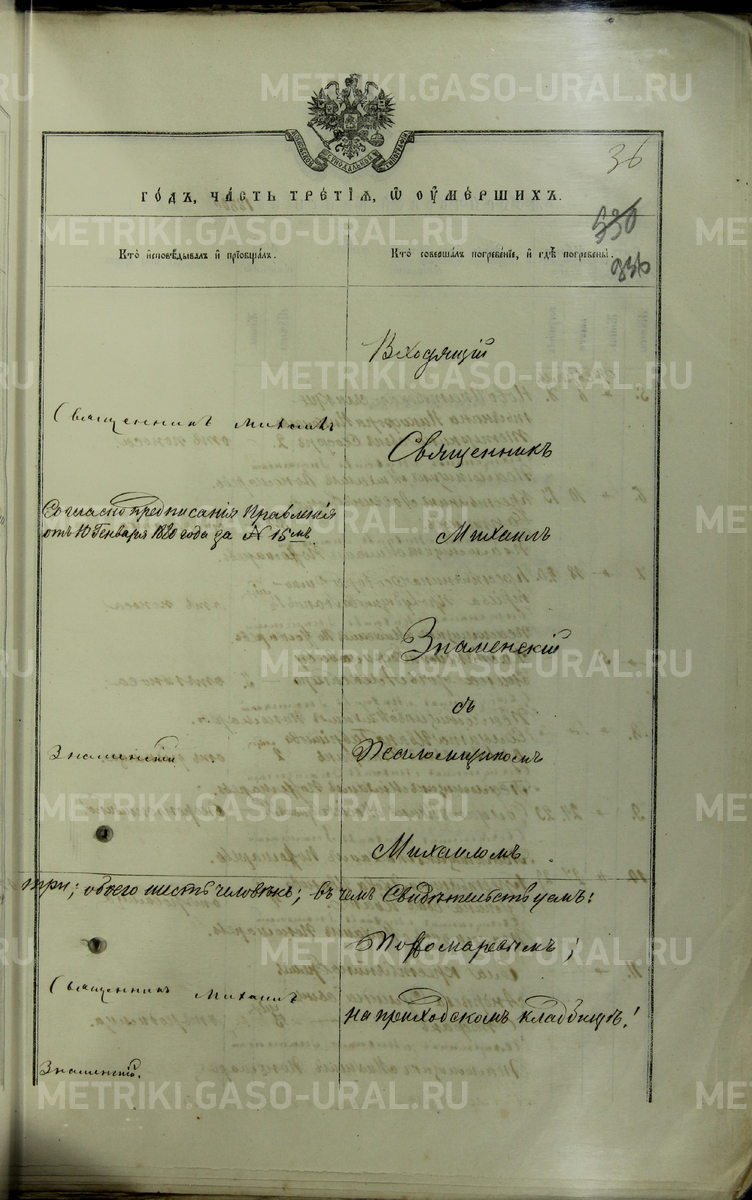 METRIKI.GASO-URAL.RU
36
ГО́ДЪ, ЧА́СТЬ ТРЕ́ТІѦ, Ѡ҆ ОУ҆МЕ́РШИХЪ.
530
336
Кто̀ и҆сповѣ́дывалъ и҆ прїѡбща́лъ.
Кто̀ соверша́лъ погребе́нїе, и҆ гдѣ̀ погребены̀.
Входящій
Священникъ Михаилъ
Священникъ
Согласно предписанія Правленія
отъ 10 Генваря 1880 года за № 15 мъ.
Михаилъ
Знаменскій
съ
Знаменскій
Псаломщикомъ
Михаиломъ
три; обоего шесть человѣкъ; въ чемъ Свидѣтельствуемъ:
Пономаревымъ;
Священникъ Михаилъ
на приходскомъ кладбищѣ!
Знаменскій.